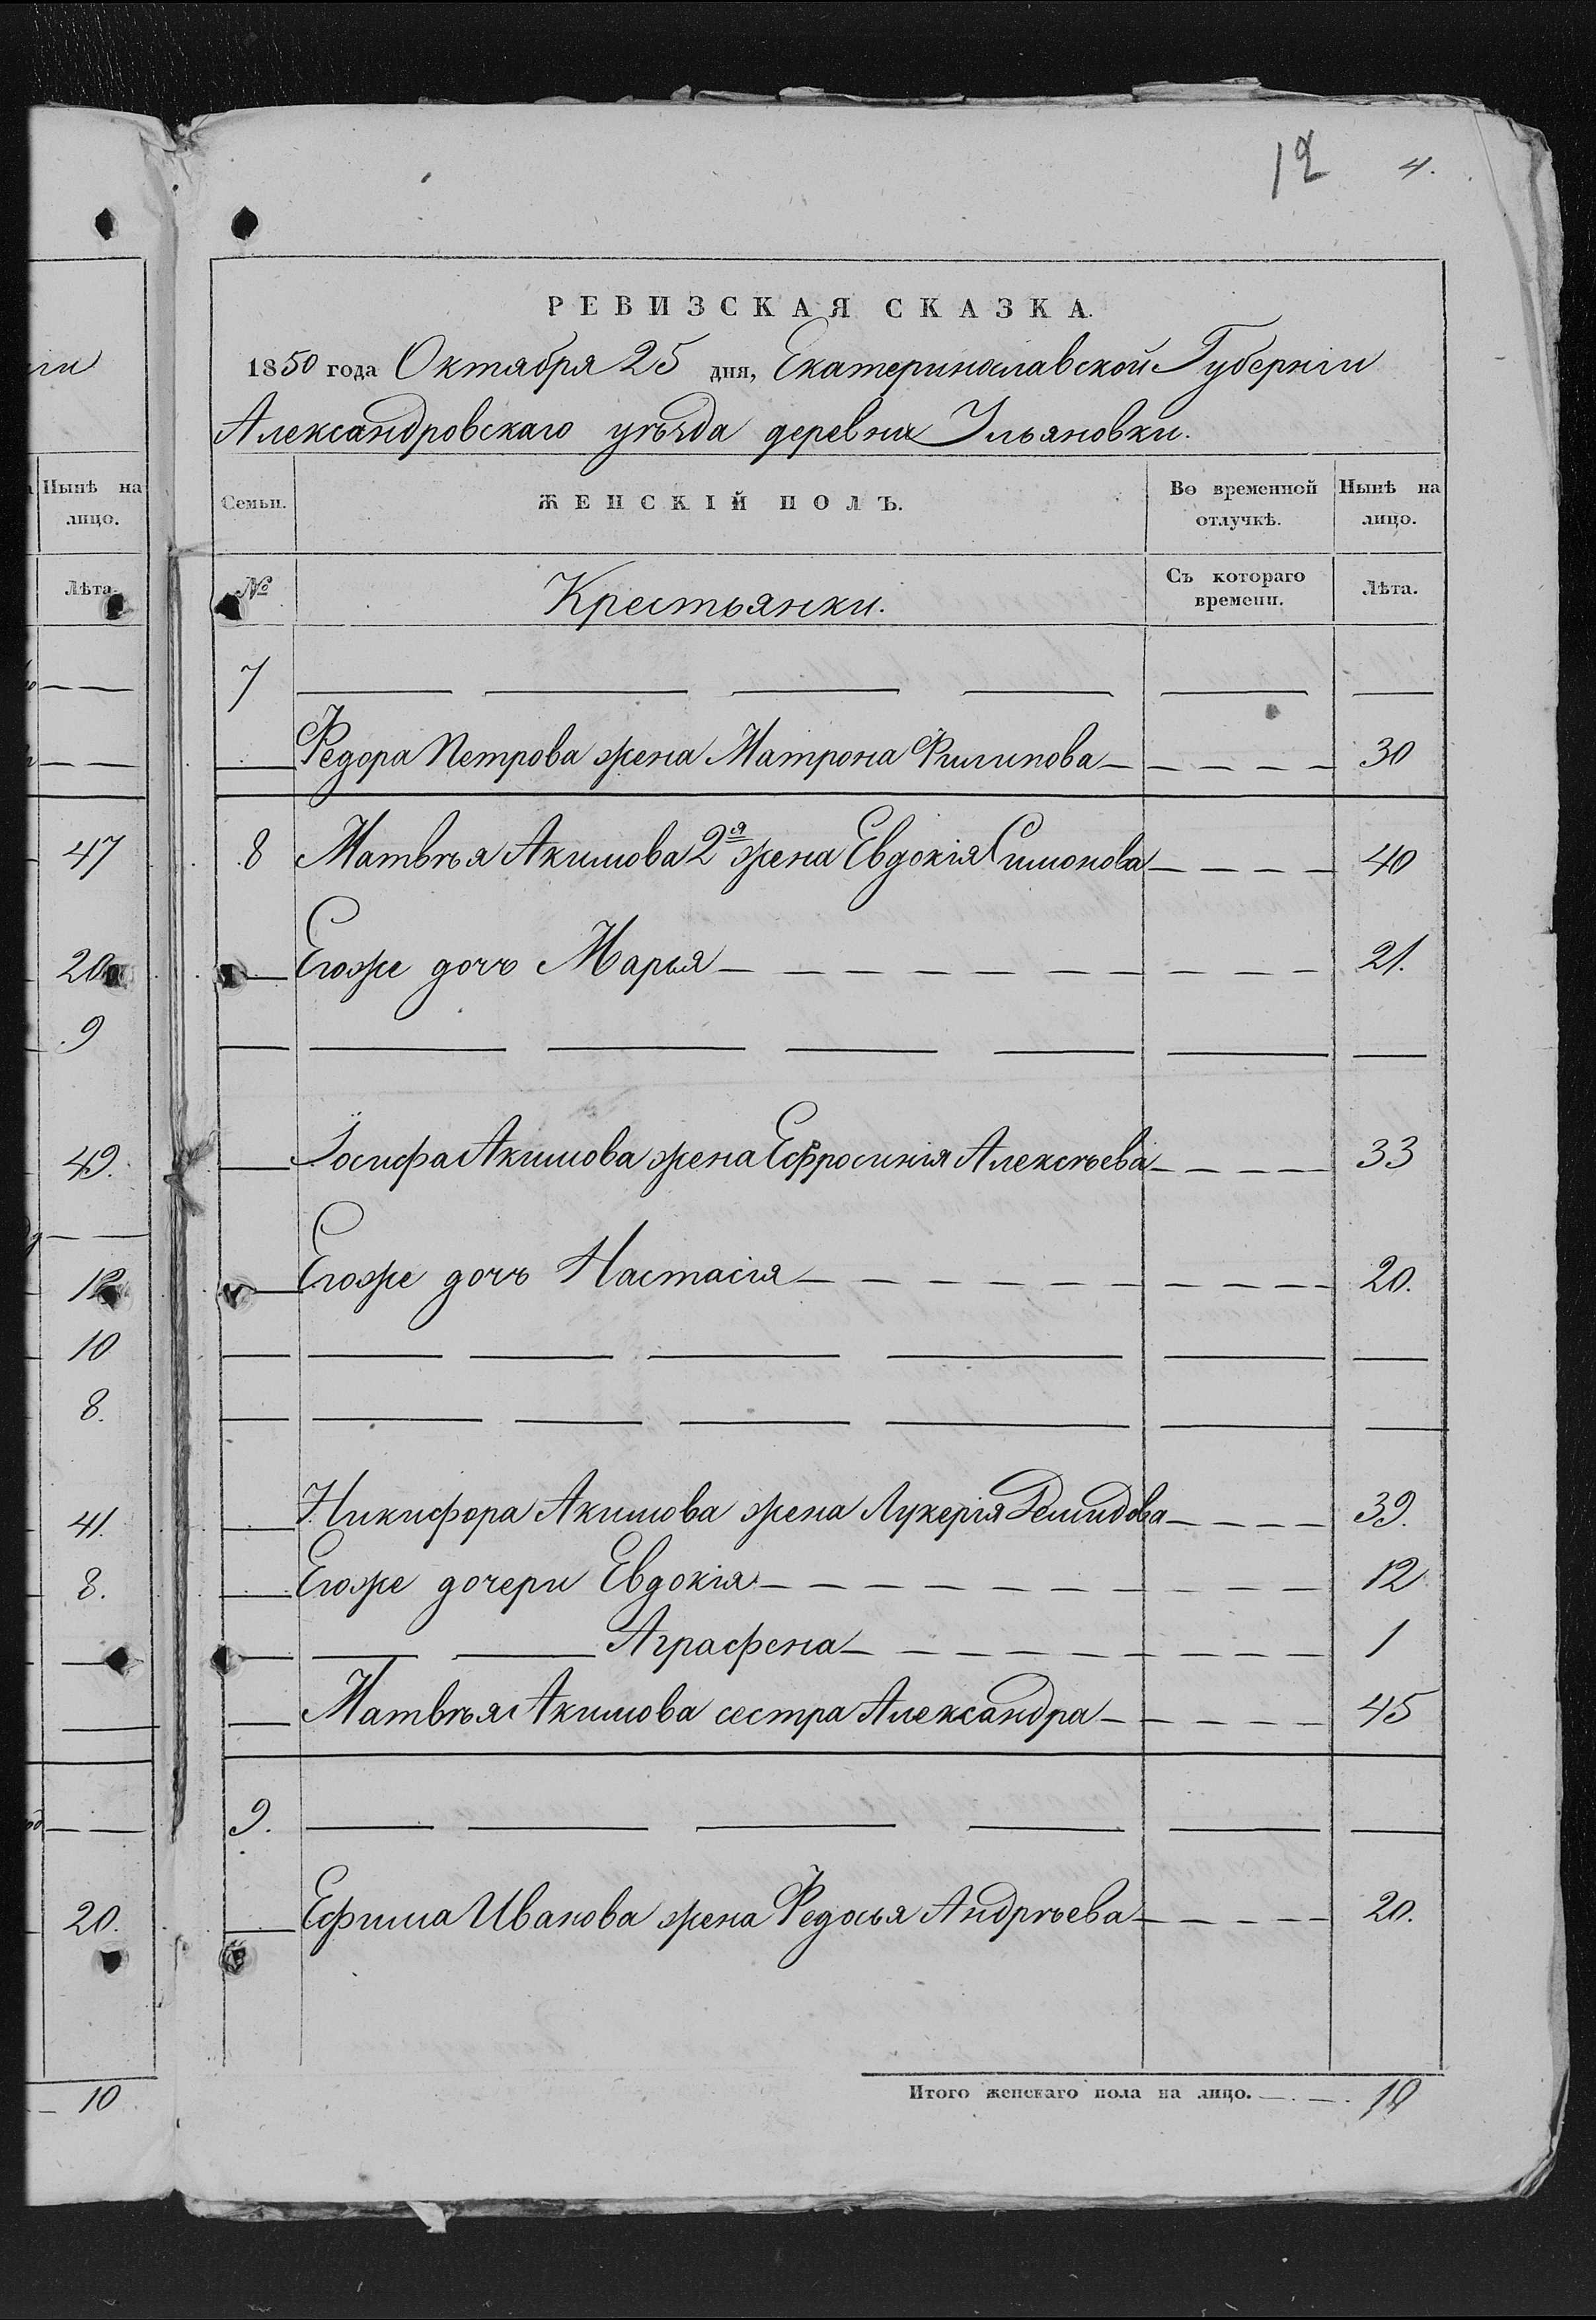 12 4.
РЕВИЗСКАЯ СКАЗКА.
1850 года Октября 25 дня, Екатеринославской Губернiи
Александровскаго уѣзда деревни Ульяновки.
Семьи. ЖЕНСКIЙ ПОЛЪ. Во временной отлучкѣ. Нынѣ на лицо.
№ Крестьянки. Съ котораго времени. Лѣта.
7
Ѳедора Петрова жена Матрона Филипова 30
8 Матвѣя Акимова 2я жена Евдокiя Симонова 40
Егоже дочь Марья 21.
Iосифа Акимова жена Ефросинiя Алексѣева 33
Егоже дочь Настасiя 20.
Никифора Акимова жена Лукерiя Демидова 39.
Егоже дочери Евдокiя 12
Аграфена 1
Матвѣя Акимова сестра Александра 45
9.
Ефима Иванова жена Ѳедосья Андрѣева 20.
Итого женскаго пола на лицо. 10
Нынѣ на
лицо.
Лѣта.
47
20
9
49.
12
10
8.
41.
8.
20.
10